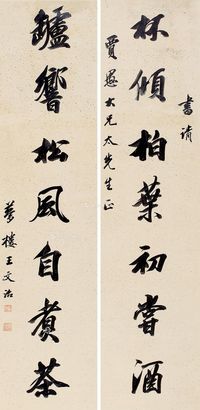 書請
杯傾柏葉初嘗酒
賈愚大兄太先生正
鑪響松風自煮茶
夢樓王文治